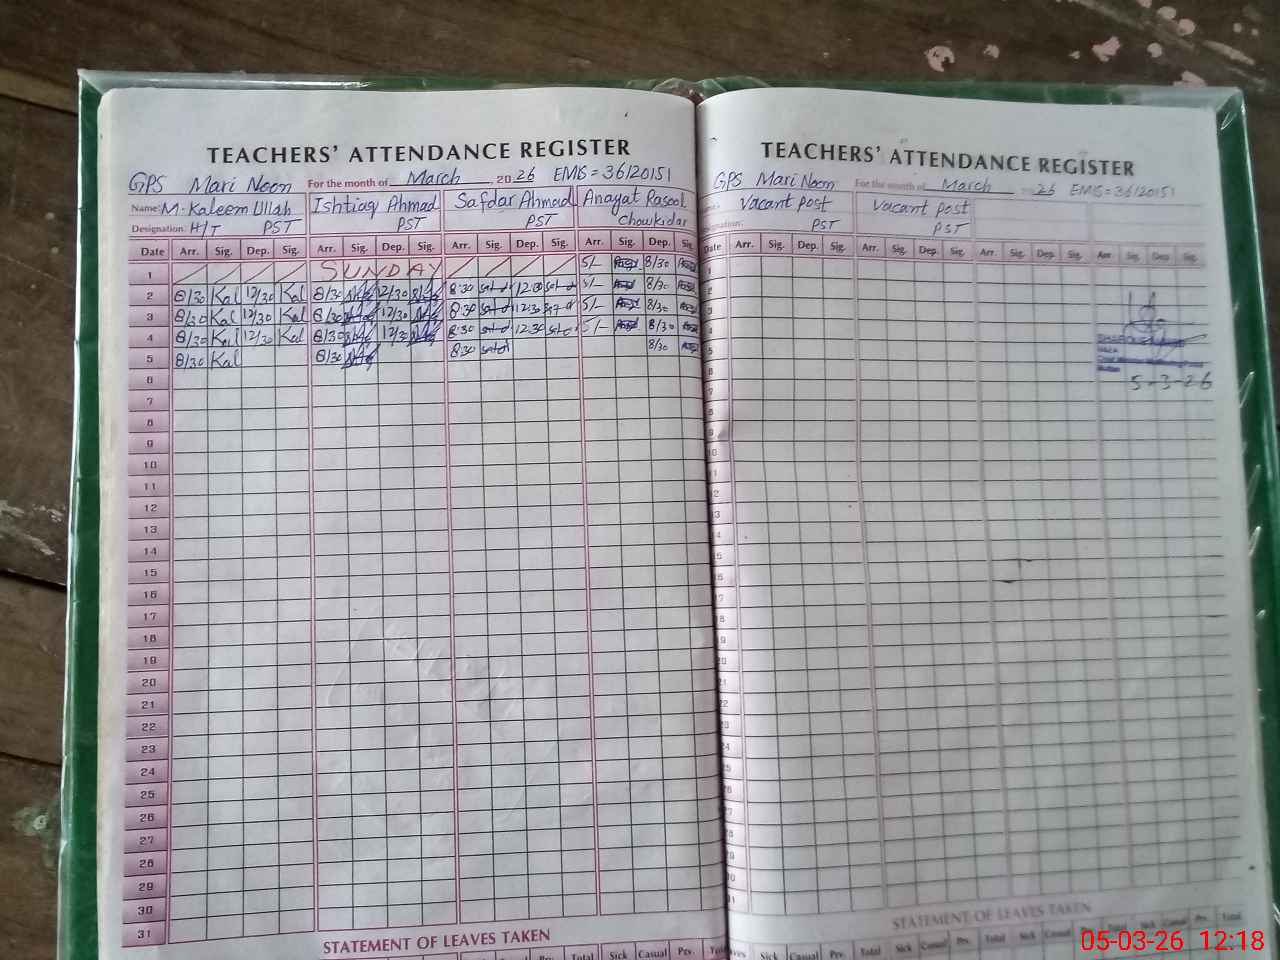 TEACHERS' ATTENDANCE REGISTER
GPS Mari Noon For the month of March 2026 EMIS = 36120151
Name: M. Kaleem Ullah Ishtiaq Ahmad Safdar Ahmad Anayat Rasool
Designation: H/T PST PST PST Chowkidar
Date Arr. Sig. Dep. Sig. Arr. Sig. Dep. Sig. Arr. Sig. Dep. Sig. Arr. Sig. Dep. Sig.
1 SUNDAY 5/- 8/30
2 8/30 Kal 12/30 Kal 8/30 12/30 8:30 12:30 5/- 8/30
3 8/30 Kal 12/30 Kal 8/30 12/30 8:30 12:30 5/- 8/30
4 8/30 Kal 12/30 Kal 8/30 12/30 8:30 12:30 5/- 8/30
5 8/30 Kal 8/30 8:30 8/30
6
7
8
9
10
11
12
13
14
15
16
17
18
19
20
21
22
23
24
25
26
27
28
29
30
31
STATEMENT OF LEAVES TAKEN
Sick Casual Prv. Total Sick Casual Prv.
TEACHERS' ATTENDANCE REGISTER
GPS Mari Noon For the month of March 2026 EMIS = 36120151
Vacant post Vacant post
Designation: PST PST
Date Arr. Sig. Dep. Sig. Arr. Sig. Dep. Sig. Arr. Sig. Dep. Sig. Arr. Sig. Dep. Sig.
5-3-26
STATEMENT OF LEAVES TAKEN
Sick Casual Prv. Total Sick Casual Prv. Total Sick Casual Prv. Total
05-03-26 12:18